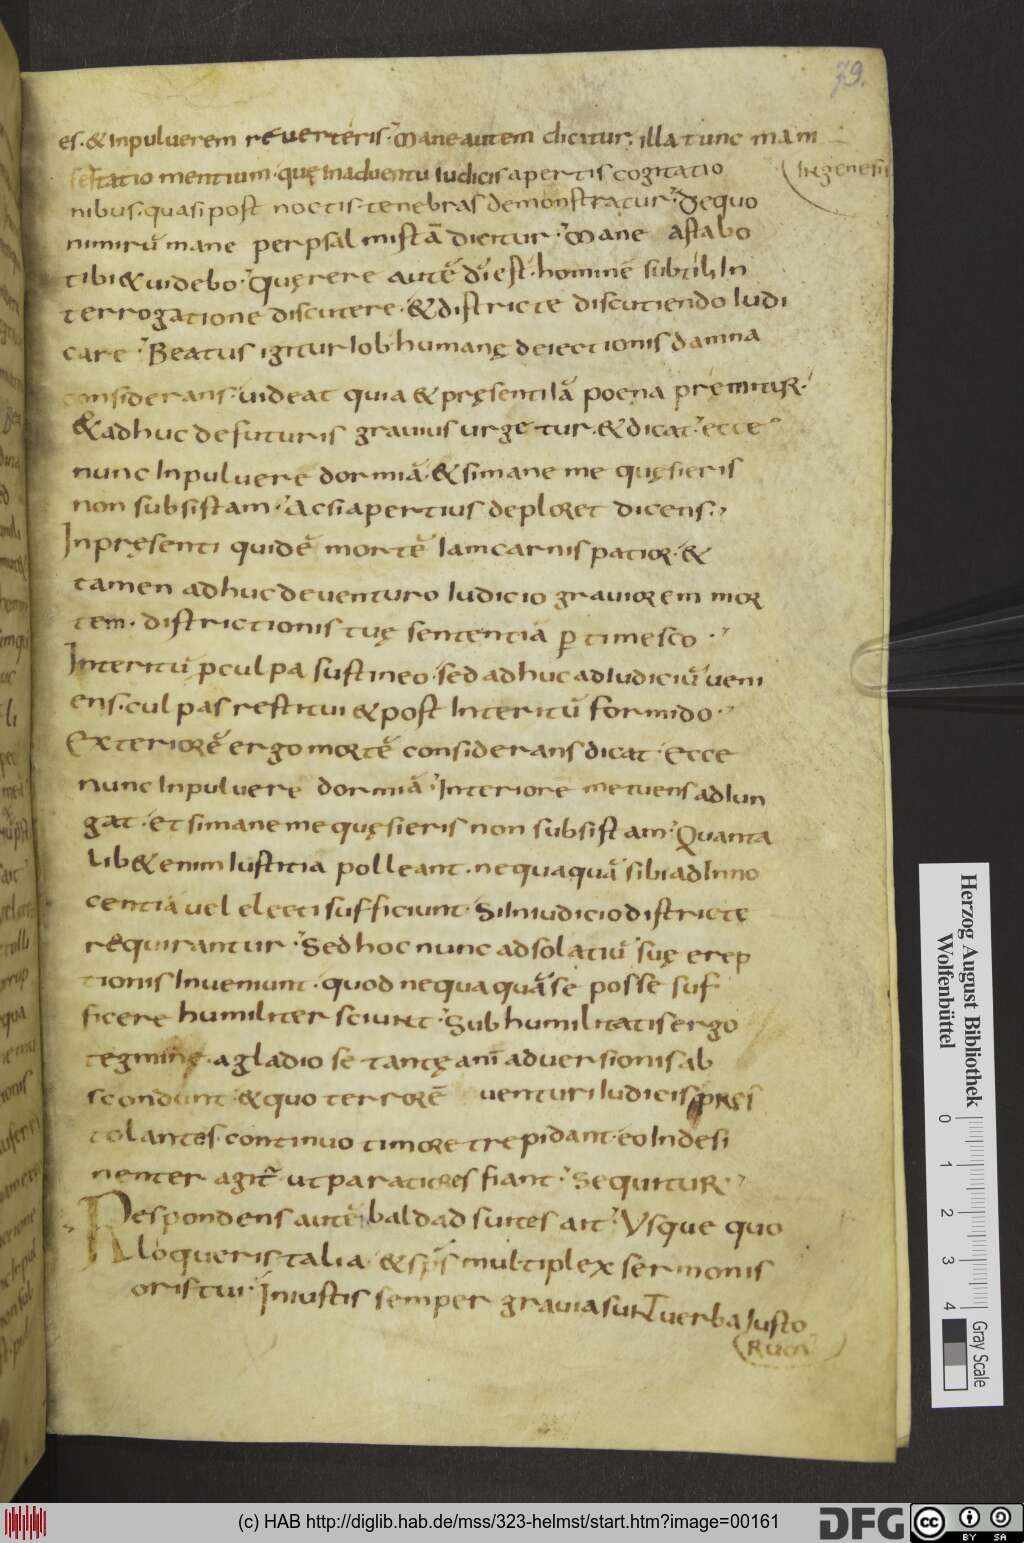 79.
es · & inpulverem reverteris · Mane autem dicitur · illa tunc mani
In genesi
festatio mentium · quę in adventu iudicis apertis cogitatio
nibus · quasi post noctis · tenebras demonstratur · De quo
nimirū mane per psalmistā dicitur · Mane astabo
tibi & videbo · Quęrere autē di est · hominē subtili in
terrogatione discutere · & districte discutiendo iudi
care · Beatus igitur iob humanę deiectionis damna
considerans · videat quia & pręsenti iā poena pręmitur ·
& adhuc de futuris gravius urgetur · & dicat · ecce
nunc in pulvere dormiā · & si mane me quęsieris
non subsistam · Ac si apertius deploret dicens ·
In pręsenti quidē mortē iam carnis patior · &
tamen adhuc de venturo iudicio graviorem mor
tem · districtionis tuę sententiā ptimesco ·
Interitū p culpa sustineo · sed adhuc ad iudiciū veni
ens · culpas restitui & post interitū formido ·
Exteriorē ergo mortē considerans dicat · Ecce
nunc in pulvere dormiā · Interiorē metuens adiun
gat · et si mane me quęsieris non subsistam · Quanta
lib& enim iustitia polleant · nequaquā sibi ad inno
centiā vel electi sufficiunt · Si in iudicio districtę
requirantur · Sed hoc nunc ad solatiū suę erep
tionis inveniunt · quod nequaquā se posse suf
ficere humiliter sciunt · Sub humilitatis ergo
tegmine · a gladio se tantę animadversionis ab
scondunt · & quo terrorē venturi iudicis pręs
tolantes · continuo timore trepidant · eo indesi
nenter agit̄ · ut paratiores fiant · Sequitur
Respondens autē baldad suites ait · Vsque quo
loqueris talia · & sps multiplex sermonis
oris tui · Iniustis semper gravia sunt verba iusto
Rum
Herzog August Bibliothek
Wolfenbüttel
0 1 2 3 4
Gray Scale
(c) HAB http://diglib.hab.de/mss/323-helmst/start.htm?image=00161
DFG
cc BY SA